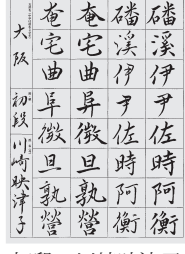 磻溪伊尹佐時阿衡
磻溪伊尹佐時阿衡
奄宅曲阜微旦孰營
奄宅曲阜微旦孰營
大阪 初段 川崎映津子